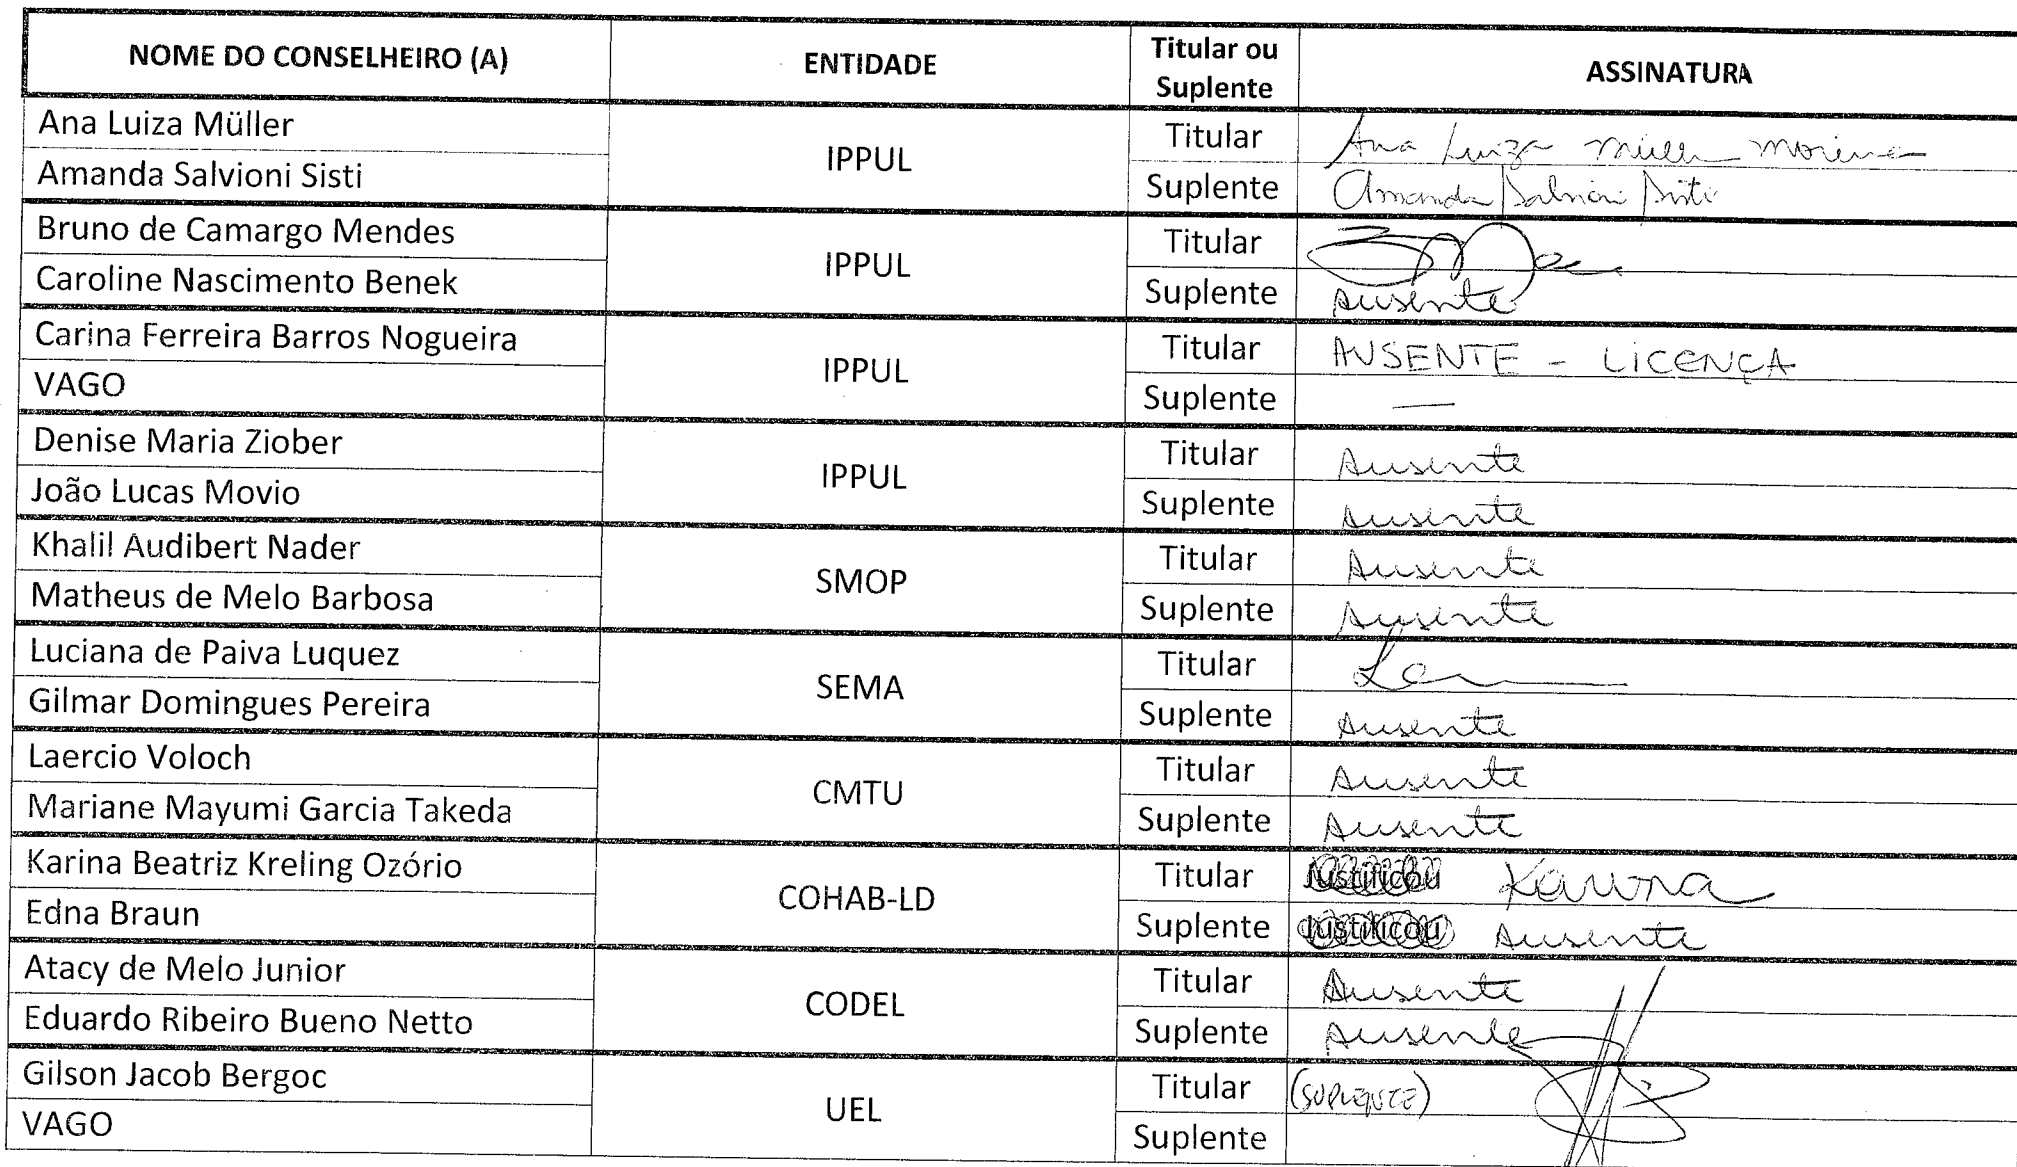 NOME DO CONSELHEIRO (A) ENTIDADE Titular ou Suplente ASSINATURA
Ana Luiza Müller IPPUL Titular Ana Luiza Müller Moreno
Amanda Salvioni Sisti Suplente Amanda Salvioni Sisti
Bruno de Camargo Mendes IPPUL Titular
Caroline Nascimento Benek Suplente Ausente
Carina Ferreira Barros Nogueira IPPUL Titular AUSENTE - LICENÇA
VAGO Suplente —
Denise Maria Ziober IPPUL Titular Ausente
João Lucas Movio Suplente Ausente
Khalil Audibert Nader SMOP Titular Ausente
Matheus de Melo Barbosa Suplente Ausente
Luciana de Paiva Luquez SEMA Titular
Gilmar Domingues Pereira Suplente Ausente
Laercio Voloch CMTU Titular Ausente
Mariane Mayumi Garcia Takeda Suplente Ausente
Karina Beatriz Kreling Ozório COHAB-LD Titular Justificou Karina
Edna Braun Suplente Justificou Ausente
Atacy de Melo Junior CODEL Titular Ausente
Eduardo Ribeiro Bueno Netto Suplente Ausente
Gilson Jacob Bergoc UEL Titular (SUPLENTE)
VAGO Suplente